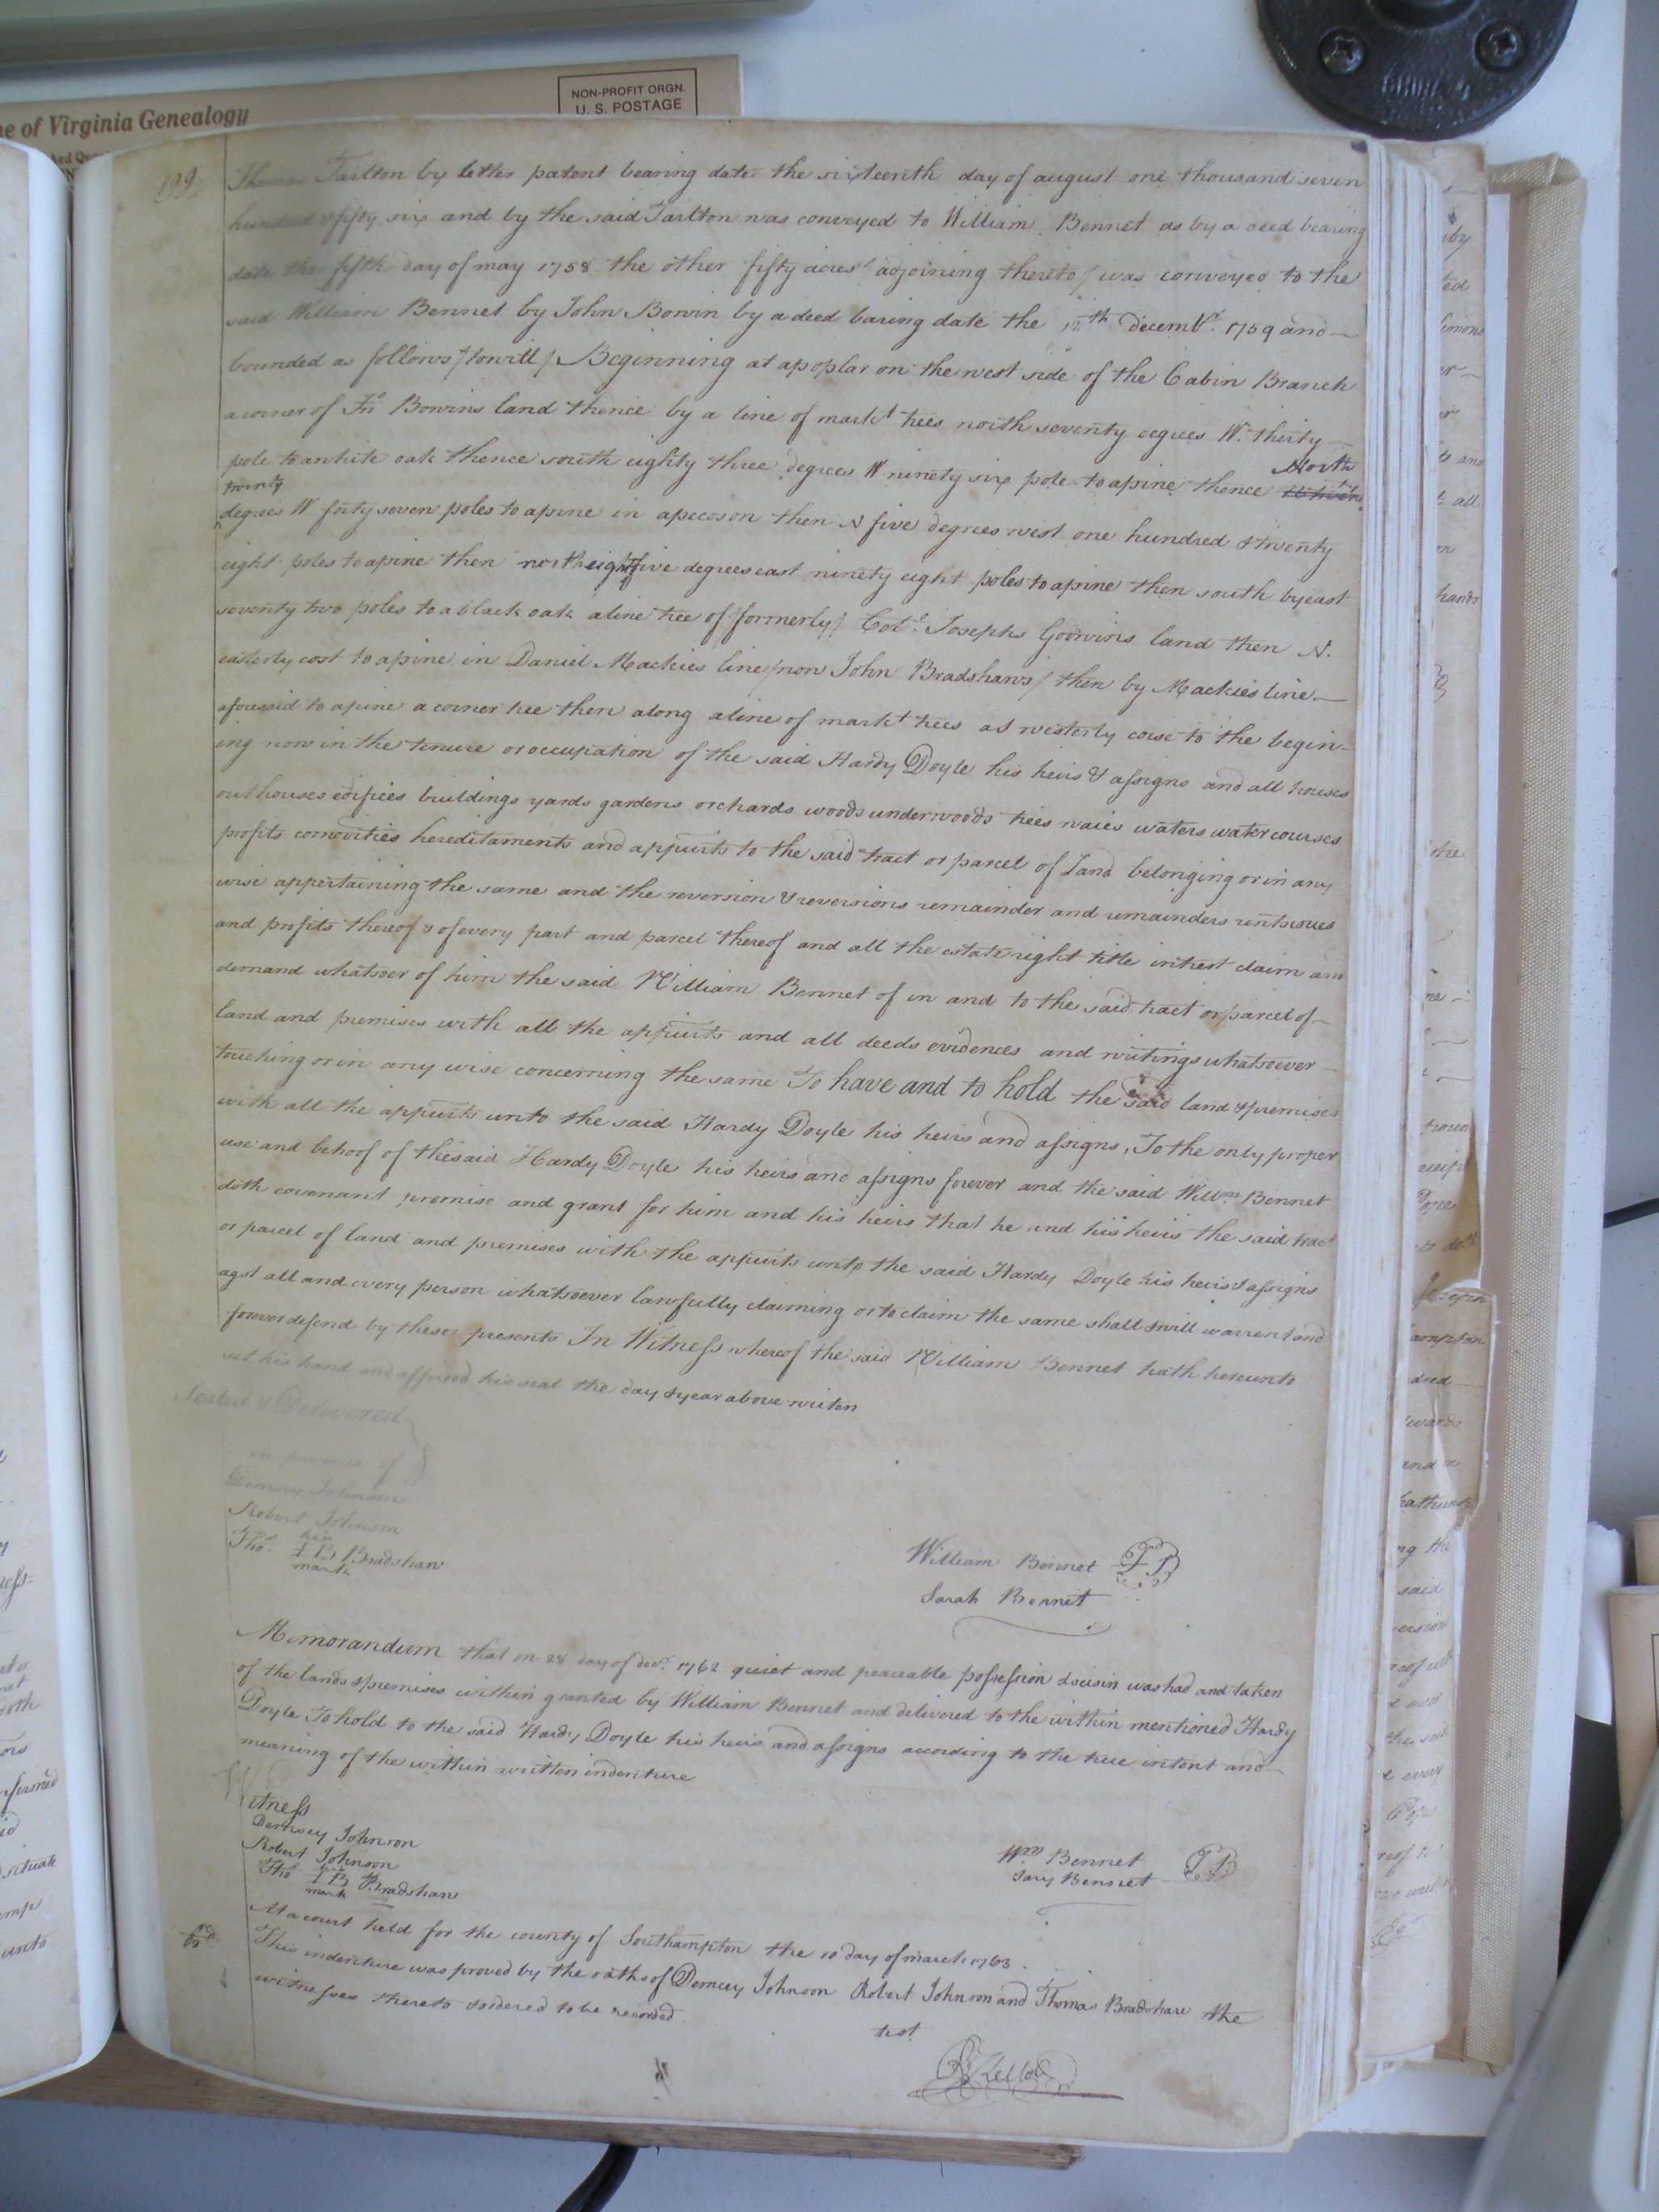 e of Virginia Genealogy
NON-PROFIT ORGN.
U. S. POSTAGE
199
Thomas Tarlton by letter patent bearing date the sixteenth day of august one thousand seven
hundred & fifty six and by the said Tarlton was conveyed to William Bennet as by a deed bearing
date the fifth day of may 1758 the other fifty acres adjoining thereto / was conveyed to the
said William Bennet by John Bowin by a deed baring date the 12th decembr. 1759 and
bounded as follows / towitt / Beginning at a poplar on the west side of the Cabin Branch
a corner of Jno Bowins land thence by a line of markt trees north seventy degrees W. thirty
pole to a white oak thence south eighty three degrees W ninety six pole to a pine thence North
twenty
degrees W forty seven poles to a pine in a pecoson then N five degrees west one hundred & twenty
eight poles to a pine then north eighty five degrees east ninety eight poles to a pine then south by east
seventy two poles to a black oak a line tree of / formerly / Colo. Josephs Godwins land then N.
easterly cost to a pine in Daniel Mackies line / now John Bradshaws / then by Mackies line
aforesaid to a pine a corner tree then along a line of markt trees a S westerly corse to the begin-
ing now in the tenure or occupation of the said Hardy Doyle his heirs & assigns and all houses
outhouses edifices buildings yards gardens orchards woods underwoods trees waies waters watercourses
profits comodities hereditaments and appurts to the said tract or parcel of Land belonging or in any
wise appertaining the same and the reversion & reversions remainder and remainders rents issues
and profits thereof & of every part and parcel thereof and all the estate right title intrest claim and
demand whatsoer of him the said William Bennet of in and to the said tract or parcel of
land and premises with all the appurts and all deeds evidences and writings whatsoever
touching or in any wise concerning the same To have and to hold the said land & premises
with all the appurts unto the said Hardy Doyle his heirs and assigns, To the only proper
use and behoof of the said Hardy Doyle his heirs and assigns forever and the said Willm Bennet
doth covenant promise and grant for him and his heirs that he and his heirs the said tract
or parcel of land and premises with the appurts unto the said Hardy Doyle his heirs & assigns
agst all and every person whatsoever lawfully claiming or to claim the same shall & will warrent and
forever defend by these presents In Witness whereof the said William Bennet hath hereunto
set his hand and affixed his seal the day & year above writen
Sealed & Delivered
in presence of
Demsey Johnson
Robert Johnson
his
Tho. I B Bradshaw
mark
William Bennet
Sarah Bennet
Memorandum that on 28 day of decr. 1762 quiet and peaceable possession & seisin was had and taken
of the lands & premises within granted by William Bennet and delivered to the within mentioned Hardy
Doyle To hold to the said Hardy Doyle his heirs and assigns according to the true intent and
meaning of the within written indenture
Witness
Demsey Johnson
Robert Johnson
his
Tho I B Bradshaw
mark
Wm Bennet
Sary Bennet
At a court held for the county of Southampton the 10 day of march 1763.
This indenture was proved by the oaths of Demcey Johnson Robert Johnson and Thomas Bradshaw the
witnesses thereto & ordered to be recorded
test